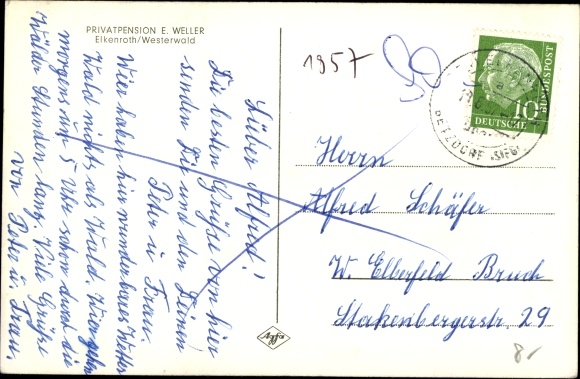 PRIVATPENSION E. WELLER
Elkenroth/Westerwald
1957
Lieber Alfred!
Die besten Grüße von hier
senden Dir und den Deinen
Peter u. Frau.
Wir haben hier wunderbares Wetter
Wald nichts als Wald. Wir gehen
morgens um 5 Uhr schon durch die
Wälder Stunden lang. Viele Grüße
von Peter u. Frau.
Herrn
Alfred Schäfer
W. Elberfeld Bruch
Stakenbergerstr. 29
DEUTSCHE BUNDESPOST
10
BETZDORF (SIEG)
Agfa
8,-